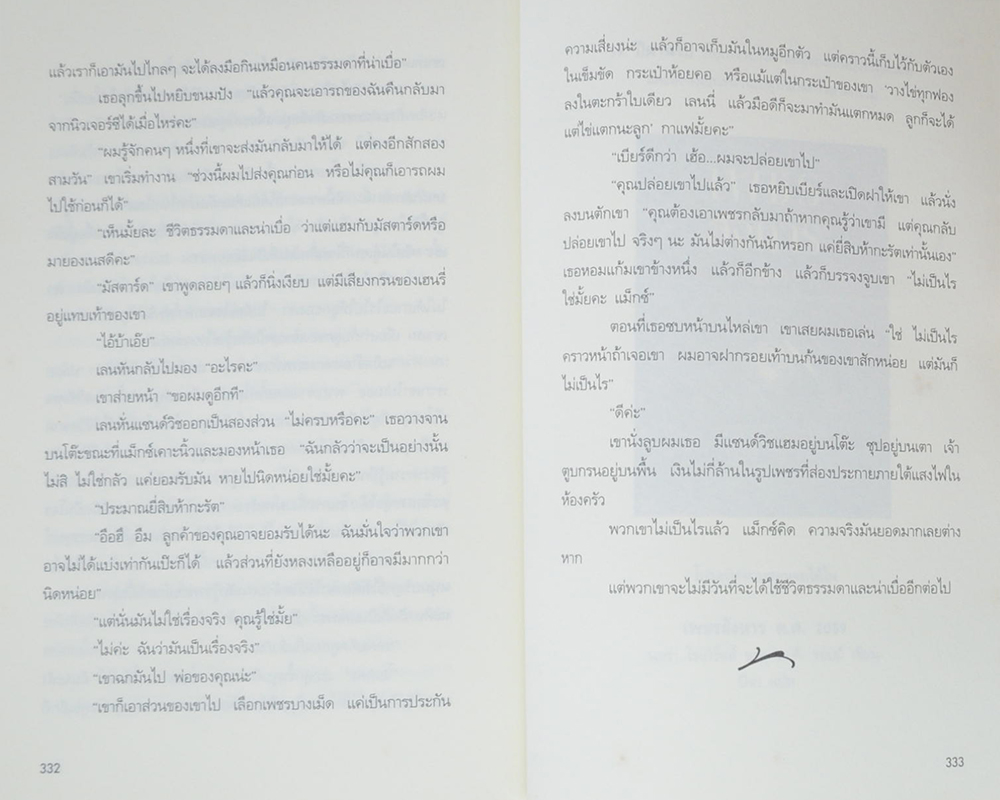 แล้วเราก็เอามันไปไกลๆ จะได้ลงมือกินเหมือนคนธรรมดาที่น่าเบื่อ"
เธอลุกขึ้นไปหยิบขนมปัง "แล้วคุณจะเอารถของฉันคืนกลับมา
จากนิวเจอร์ซีได้เมื่อไหร่คะ"
"ผมรู้จักคนๆ หนึ่งที่เขาจะส่งมันกลับมาให้ได้ แต่คงอีกสักสอง
สามวัน" เขาเริ่มทำงาน "ช่วงนี้ผมไปส่งคุณก่อน หรือไม่คุณก็เอารถผม
ไปใช้ก่อนก็ได้"
"เห็นมั้ยละ ชีวิตธรรมดาและน่าเบื่อ ว่าแต่แฮมกับมัสตาร์ดหรือ
มายองเนสดีคะ"
"มัสตาร์ด" เขาพูดลอยๆ แล้วก็นิ่งเงียบ แต่มีเสียงกรนของเฮนรี่
อยู่แทบเท้าของเขา
"ไอ้บ้าเอ๊ย"
เลนหันกลับไปมอง "อะไรคะ"
เขาส่ายหน้า "ขอผมดูอีกที"
เลนหั่นแซนด์วิชออกเป็นสองส่วน "ไม่ครบหรือคะ" เธอวางจาน
บนโต๊ะขณะที่แม็กซ์เคาะนิ้วและมองหน้าเธอ "ฉันกลัวว่าจะเป็นอย่างนั้น
ไม่สิ ไม่ใช่กลัว แค่ยอมรับมัน หายไปนิดหน่อยใช่มั้ยคะ"
"ประมาณยี่สิบห้ากะรัต"
"อือฮึ อืม ลูกค้าของคุณอาจยอมรับได้นะ ฉันมั่นใจว่าพวกเขา
อาจไม่ได้แบ่งเท่ากันเป๊ะก็ได้ แล้วส่วนที่ยังหลงเหลืออยู่ก็อาจมีมากกว่า
นิดหน่อย"
"แต่นั่นมันไม่ใช่เรื่องจริง คุณรู้ใช่มั้ย"
"ไม่ค่ะ ฉันว่ามันเป็นเรื่องจริง"
"เขาฉกมันไป พ่อของคุณน่ะ"
"เขาก็เอาส่วนของเขาไป เลือกเพชรบางเม็ด แค่เป็นการประกัน
332
ความเสี่ยงน่ะ แล้วก็อาจเก็บมันในหมูอีกตัว แต่คราวนี้เก็บไว้กับตัวเอง
ในเข็มขัด กระเป๋าห้อยคอ หรือแม้แต่ในกระเป๋าของเขา 'วางไข่ทุกฟอง
ลงในตะกร้าใบเดียว เลนนี่ แล้วมือดีก็จะมาทำมันแตกหมด ลูกก็จะได้
แต่ไข่แตกนะลูก' กาแฟมั้ยคะ"
"เบียร์ดีกว่า เฮ้อ...ผมจะปล่อยเขาไป"
"คุณปล่อยเขาไปแล้ว" เธอหยิบเบียร์และเปิดฝาให้เขา แล้วนั่ง
ลงบนตักเขา "คุณต้องเอาเพชรกลับมาถ้าหากคุณรู้ว่าเขามี แต่คุณกลับ
ปล่อยเขาไป จริงๆ นะ มันไม่ต่างกันนักหรอก แค่ยี่สิบห้ากะรัตเท่านั้นเอง"
เธอหอมแก้มเขาข้างหนึ่ง แล้วก็อีกข้าง แล้วก็บรรจงจูบเขา "ไม่เป็นไร
ใช่มั้ยคะ แม็กซ์"
ตอนที่เธอซบหน้าบนไหล่เขา เขาเสยผมเธอเล่น "ใช่ ไม่เป็นไร
คราวหน้าถ้าเจอเขา ผมอาจฝากรอยเท้าบนก้นของเขาสักหน่อย แต่มันก็
ไม่เป็นไร"
"ดีค่ะ"
เขานั่งลูบผมเธอ มีแซนด์วิชแฮมอยู่บนโต๊ะ ซุปอยู่บนเตา เจ้า
ตูบกรนอยู่บนพื้น เงินไม่กี่ล้านในรูปเพชรที่ส่องประกายภายใต้แสงไฟใน
ห้องครัว
พวกเขาไม่เป็นไรแล้ว แม็กซ์คิด ความจริงมันยอดมากเลยต่าง
หาก
แต่พวกเขาจะไม่มีวันที่จะได้ใช้ชีวิตธรรมดาและน่าเบื่ออีกต่อไป
333